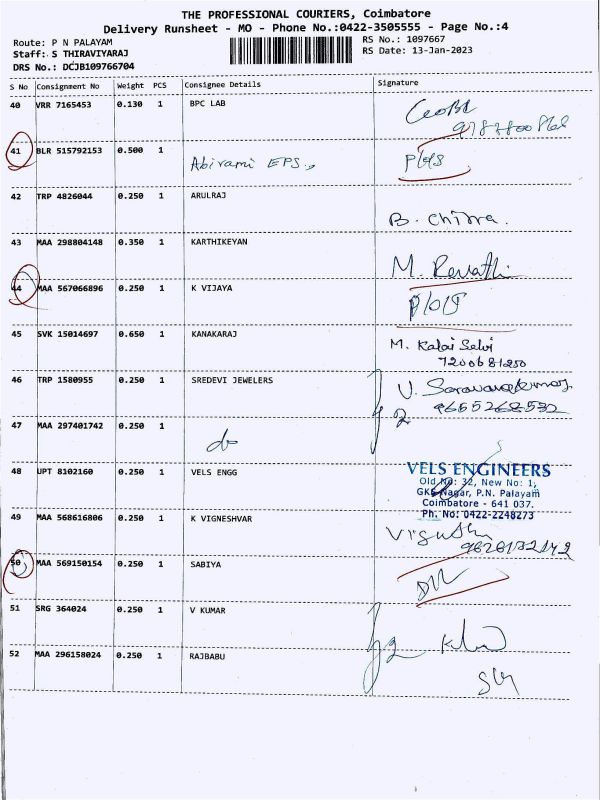 THE PROFESSIONAL COURIERS, Coimbatore
Delivery Runsheet - MO - Phone No.:0422-3505555 - Page No.:4
Route: P N PALAYAM
Staff: S THIRAVIYARAJ
DRS No.: DCJB109766704
RS No.: 1097667
RS Date: 13-Jan-2023
S No Consignment No Weight PCS Consignee Details Signature
40 VRR 7165453 0.130 1 BPC LAB
41 BLR 515792153 0.500 1 Abirami EPS
42 TRP 4826044 0.250 1 ARULRAJ B. Chitra.
43 MAA 298804148 0.350 1 KARTHIKEYAN M. Revathi
44 MAA 567066896 0.250 1 K VIJAYA
45 SVK 15014697 0.650 1 KANAKARAJ M. Kalai Selvi
7200681250
46 TRP 1580955 0.250 1 SREDEVI JEWELERS 2 V. Saravanakumar
9655268532
47 MAA 297401742 0.250 1 do
48 UPT 8102160 0.250 1 VELS ENGG VELS ENGINEERS
Old No: 32, New No: 1,
GKS Nagar, P.N. Palayam
Coimbatore - 641 037.
Ph. No: 0422-2248273
49 MAA 568616806 0.250 1 K VIGNESHVAR
50 MAA 569150154 0.250 1 SABIYA
51 SRG 364024 0.250 1 V KUMAR 2
52 MAA 296158024 0.250 1 RAJBABU